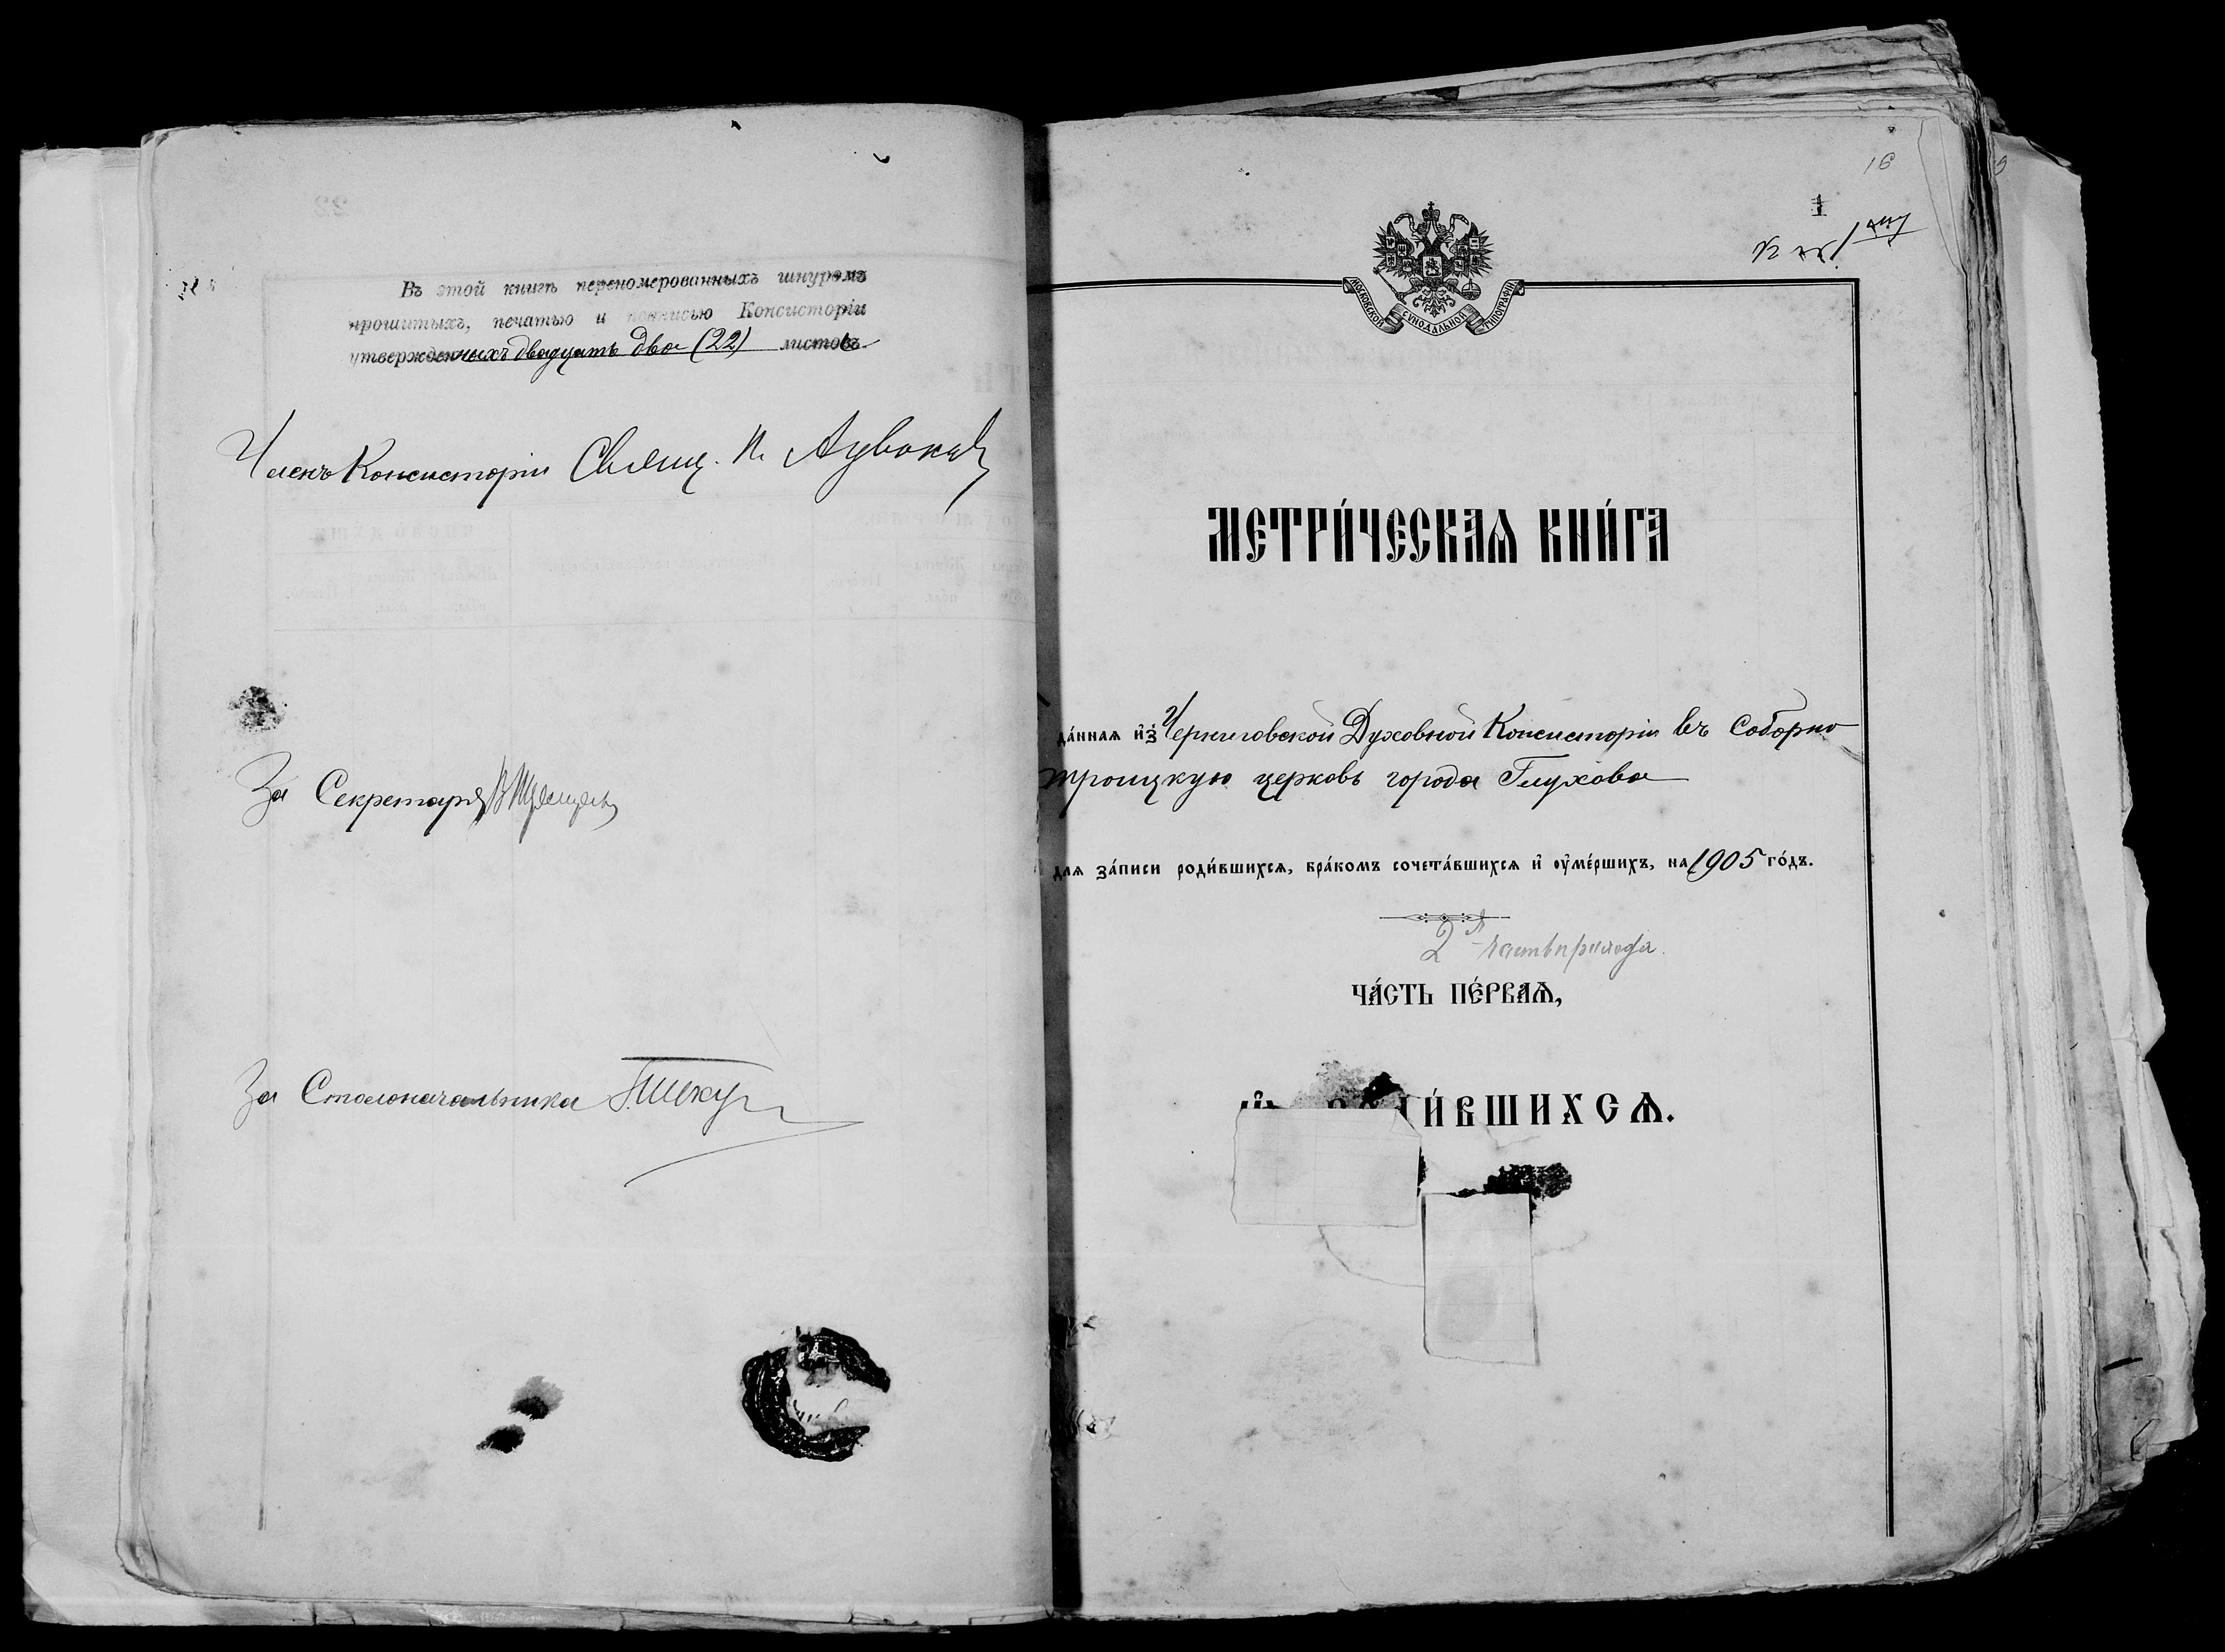 Въ этой книгѣ перенomерованныхъ шнуромъ
прошитыхъ, печатью и подписью Консисторіи
утвержденныхъ двадцать два (22) листовъ
Членъ Консисторіи Свящ. П.
За Секретаря
За Столоначальника
16
1
МОСКОВСКОЙ СѴНОДАЛЬНОЙ ТИПОГРАФІИ
МЕТРИ́ЧЕСКАѦ КНИ́ГА
да́ннаѧ и҆з̾ Черниговской Духовной Консисторіи въ Соборно
троицкую церковь города Глухова
длѧ за́писи роди́вшихсѧ, бра́комъ сочета́вшихсѧ и҆ ᲂу҆ме́ршихъ, на 1905 го́дъ.
2я часть прихода.
ЧА́СТЬ ПЕ́РВАѦ,
И́ВШИХСѦ.